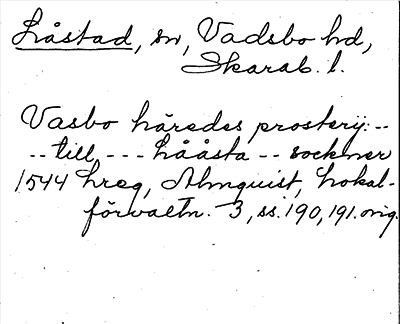 Låstad, sn, Vadsbo hd,
Skarab. l.
Vasbo häredes prosterij --
-- till --- Lååsta -- sockner
1544 hreg, Almquist, Lokal-
förvaltn. 3, ss. 190, 191. orig.